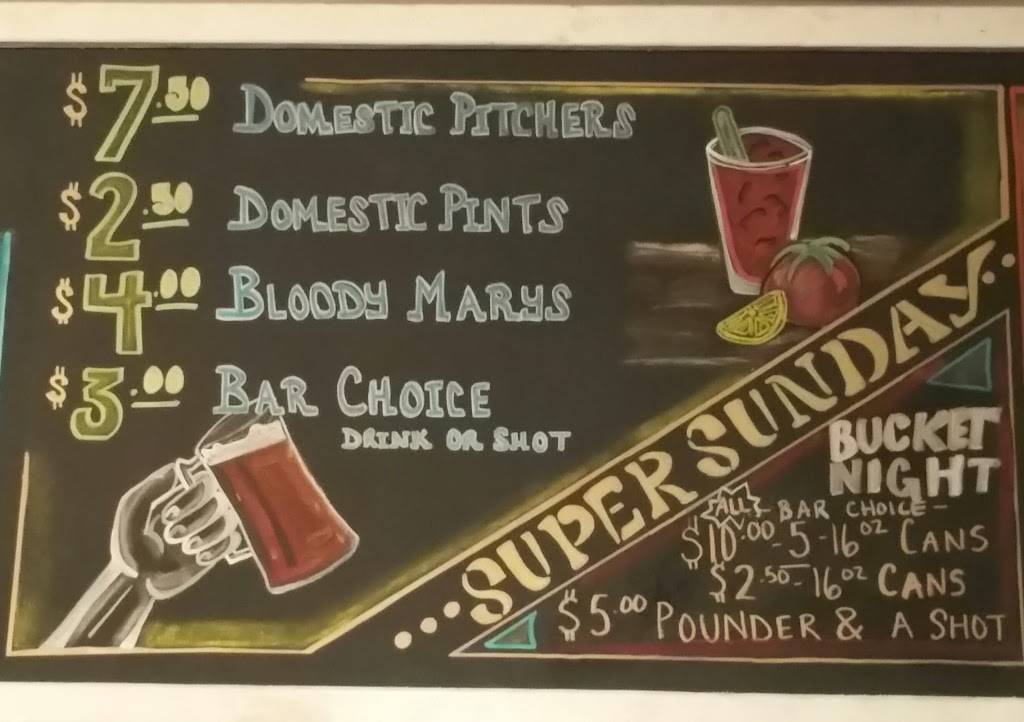 $7.50 DOMESTIC PITCHERS
$2.50 DOMESTIC PINTS
$4.00 BLOODY MARYS
$3.00 BAR CHOICE
DRINK OR SHOT
...SUPER SUNDAY...
BUCKET
NIGHT
ALL BAR CHOICE-
$10.00-5-16oz CANS
$2.50-16oz CANS
$5.00 POUNDER & A SHOT